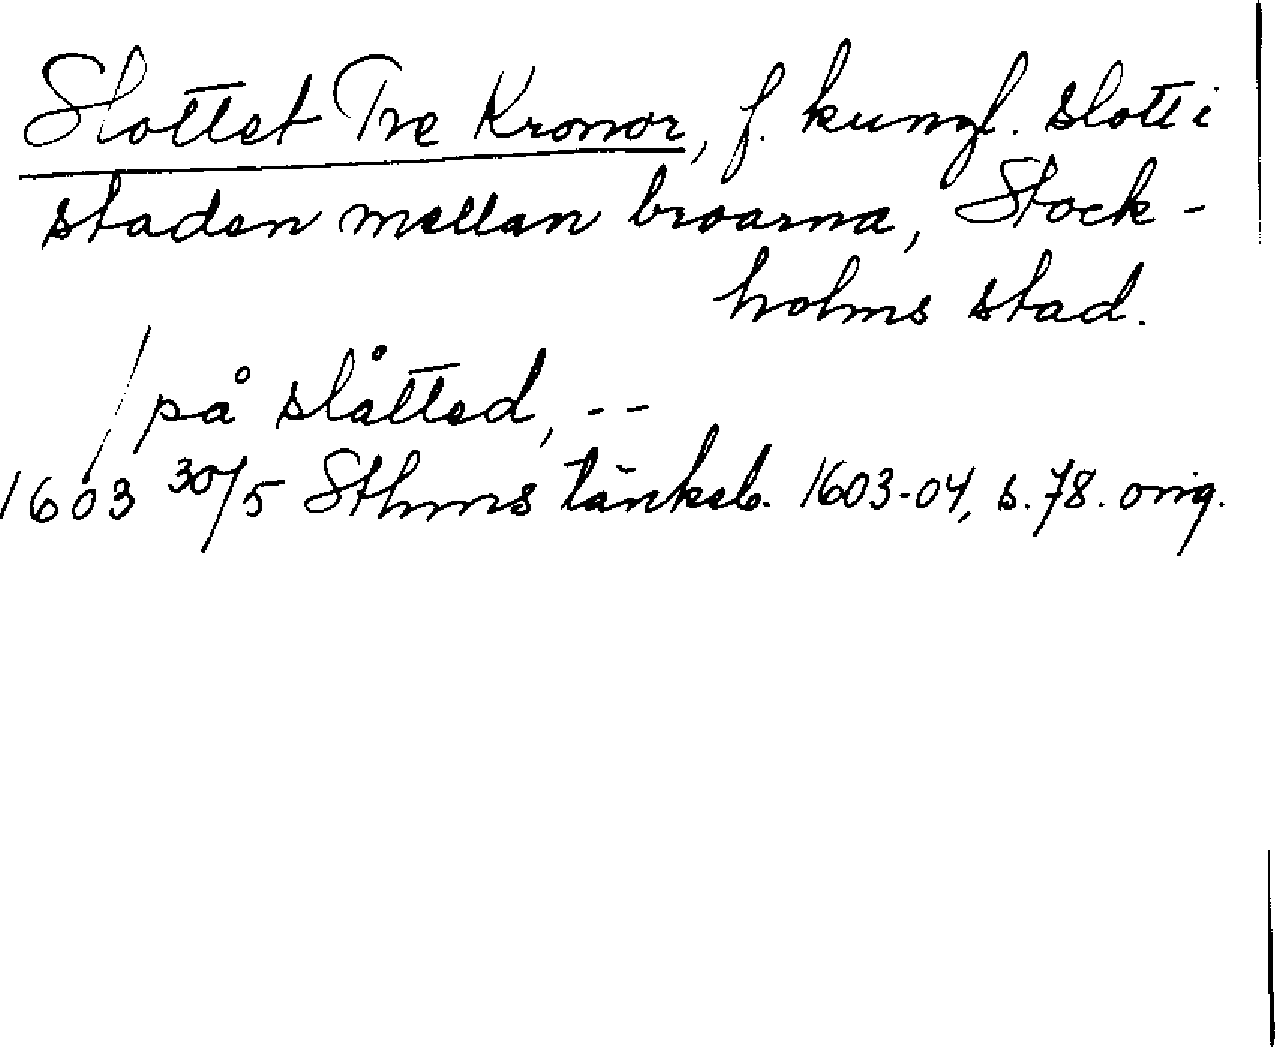 Slottet Tre Kronor, f. kungl. slott i
staden mellan broarna, Stock-
holms stad.
/på slåtted, --
1603 30/5 Sthms tänkeb. 1603-04, s. 78. orig.